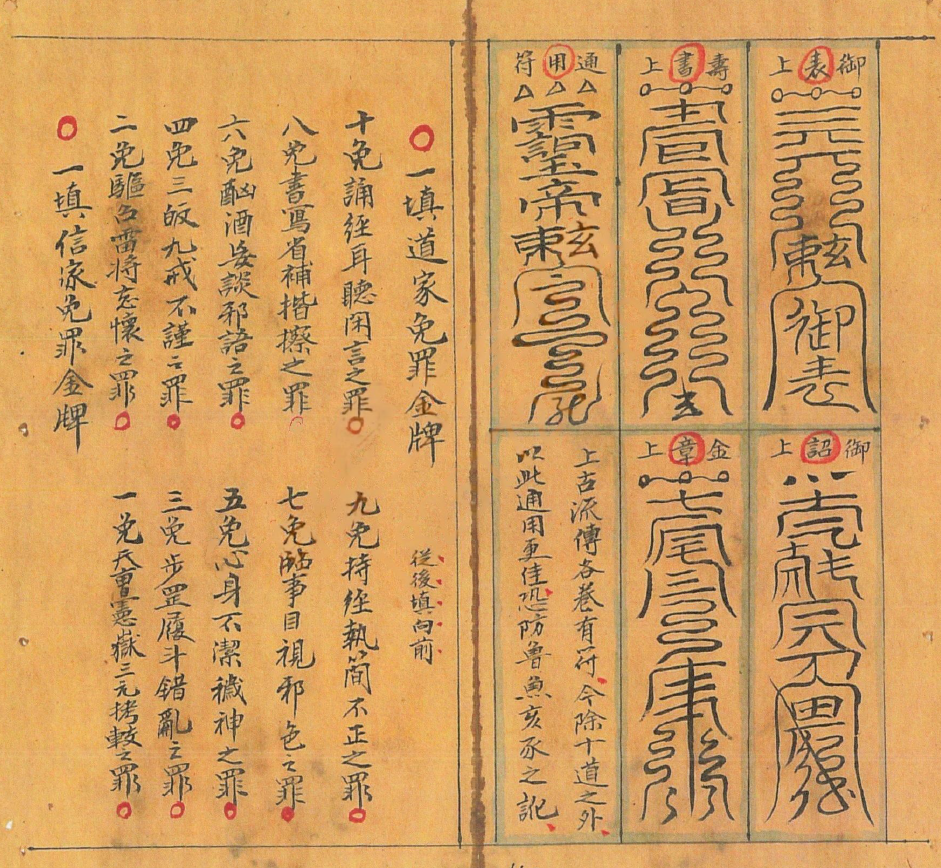 御表上
壽書上
通用符
御詔上
金章上
上古流傳各卷有符今除十道之外
以此通用更佳恐防魯魚亥豕之訛
一填道家免罪金牌
從後填向前
十免誦經耳聽閑言之罪
九免持經執簡不正之罪
八免書寫省補揩擦之罪
七免臨事目視邪色之罪
六免酗酒妄談邪語之罪
五免心身不潔穢神之罪
四免三皈九戒不謹之罪
三免步罡履斗錯亂之罪
二免驅召雷將忘懷之罪
一免天曹憲嶽三元拷較之罪
一填信家免罪金牌